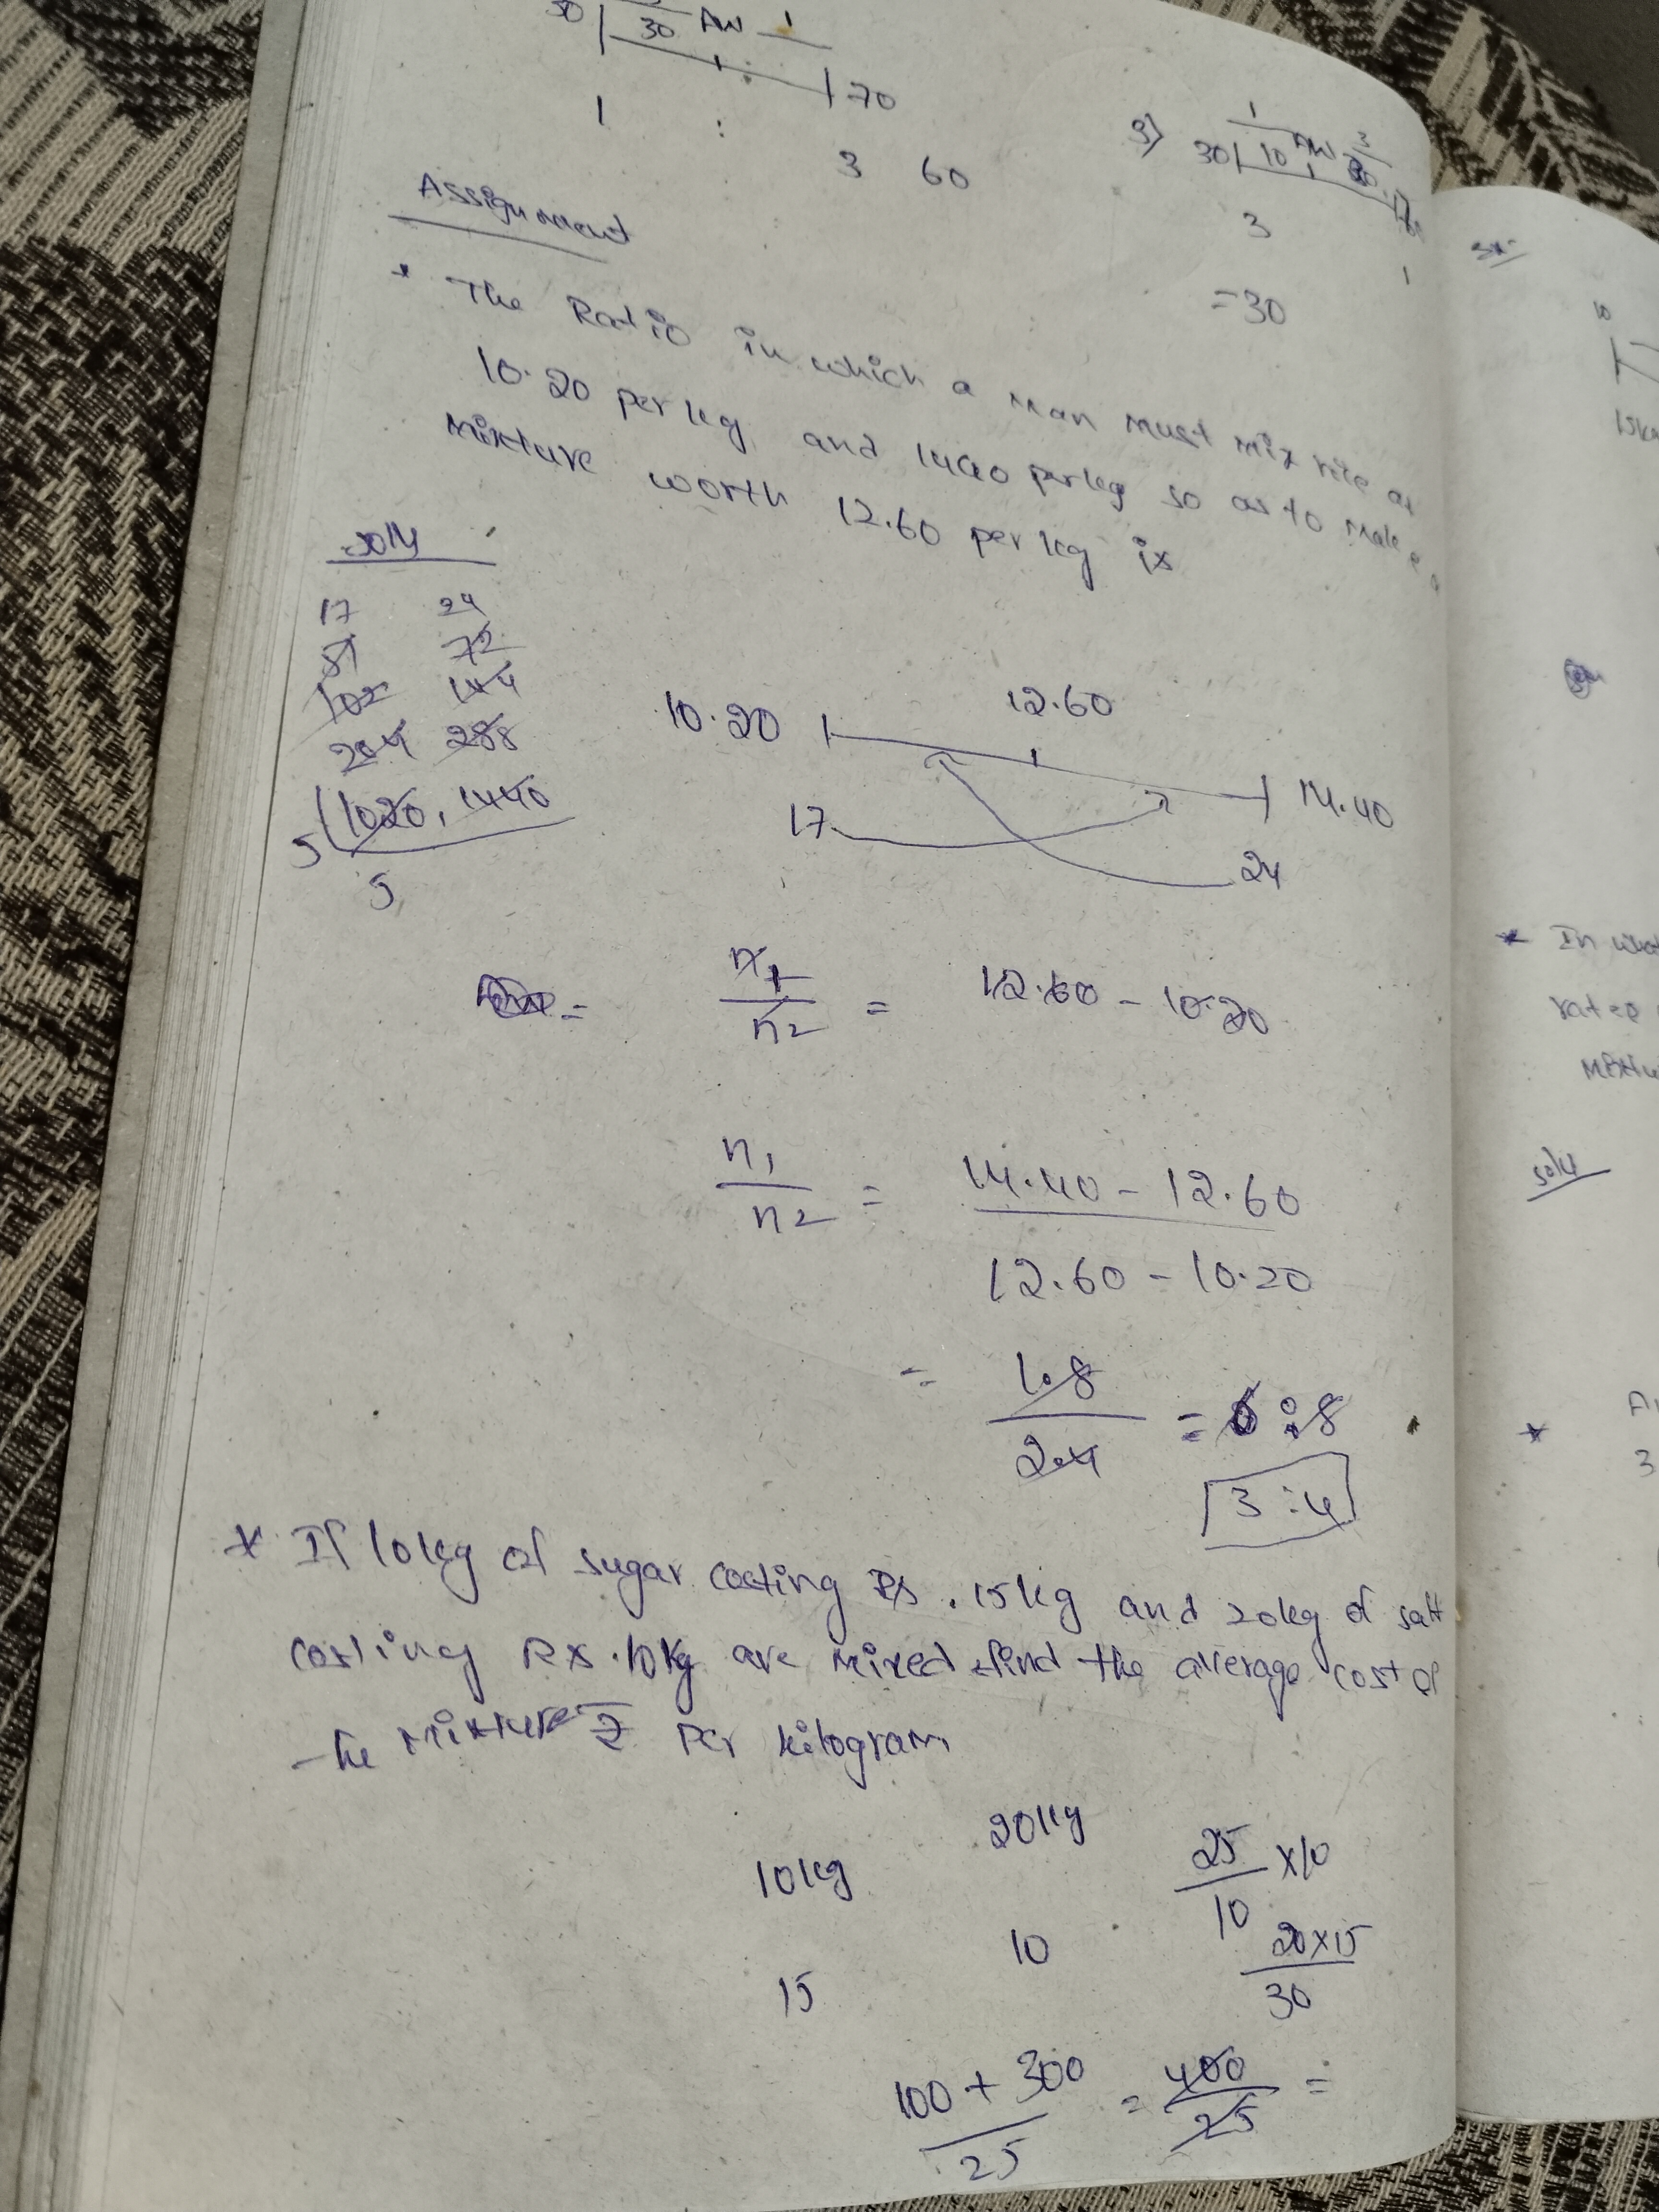 30
30 AW 1
70
1 : 3 60
3) 1
30 10 AW 3
3 1
=30
Assignment
* The Ratio in which a man must mix rice at
10.20 per kg and 1440 per kg so as to make a
mixture worth 12.60 per kg is
soln
17 24
51 72
102 144
204 288
5 1020, 1440
5
10.20 12.60 14.40
17 24
= n1/n2 = 12.60 - 10.20
n1/n2 = 14.40 - 12.60
12.60 - 10.20
= 1.8/2.4 = 6:8
3:4
* If 10kg of sugar costing Rs. 15kg and 20kg of salt
costing Rs. 10kg are mixed find the average cost of
the mixture per kilogram
10kg 20kg 25/10 x10
15 10 20x15/30
100 + 300
25
= 400/25 =
soln
10
* In what
rates
soln
*
3